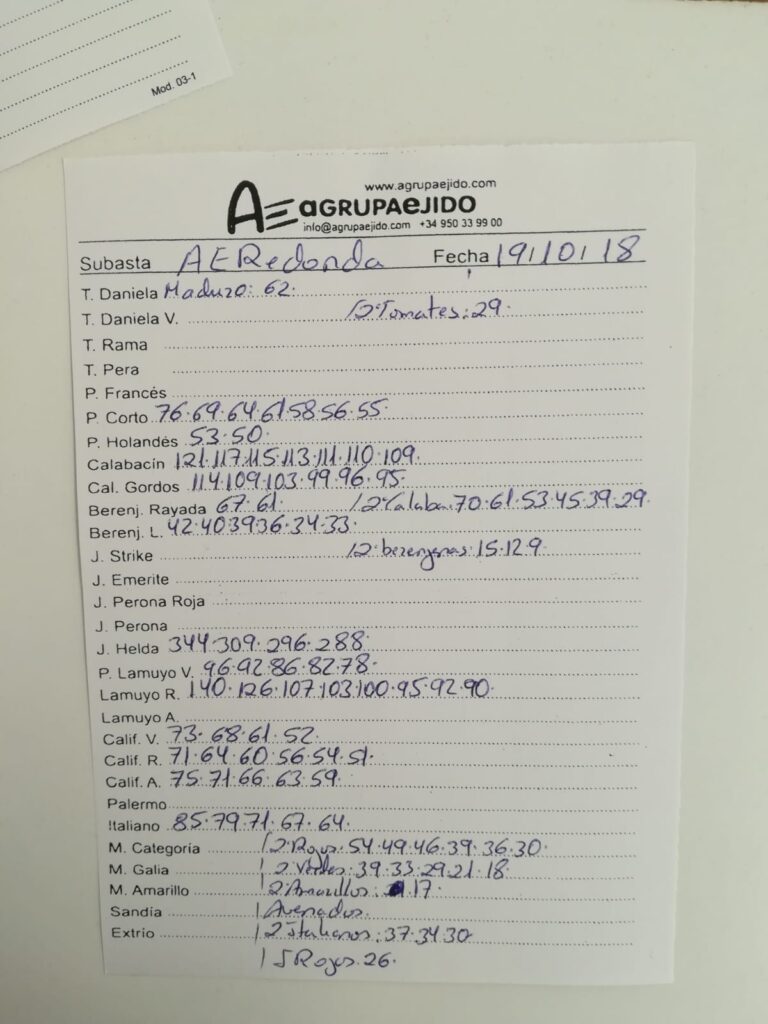 Mod. 03-1
www.agrupaejido.com
AE AGRUPAEJIDO
info@agrupaejido.com +34 950 33 99 00
Subasta AERedonda Fecha 19/10/18
T. Daniela Maduro: 62.
T. Daniela V. /2ªTomates: 29.
T. Rama
T. Pera
P. Francés
P. Corto 76.69.64.61.58.56.55.
P. Holandés 53.50.
Calabacín 121.117.115.113.111.110.109.
Cal. Gordos 114.109.103.99.96.95.
Berenj. Rayada 67.61. /2ªCalaba.70.61.53.45.39.29.
Berenj. L. 42.40.39.36.34.33.
J. Strike /2ªberenjenas:15.12.9.
J. Emerite
J. Perona Roja
J. Perona
J. Helda 344.309.296.288.
P. Lamuyo V. 96.92.86.82.78.
Lamuyo R. 140.126.107.103.100.95.92.90.
Lamuyo A.
Calif. V. 73.68.61.52.
Calif. R. 71.64.60.56.54.51.
Calif. A. 75.71.66.63.59.
Palermo
Italiano 85.79.71.67.64.
M. Categoría /2ªRojos.54.49.46.39.36.30.
M. Galia /2ªVerdes:39.33.29.21.18.
M. Amarillo /2ªAmarillos: 17.
Sandía /Averiados.
Extrío /2ªItalianos:37.34.30.
/ Rojos.26.